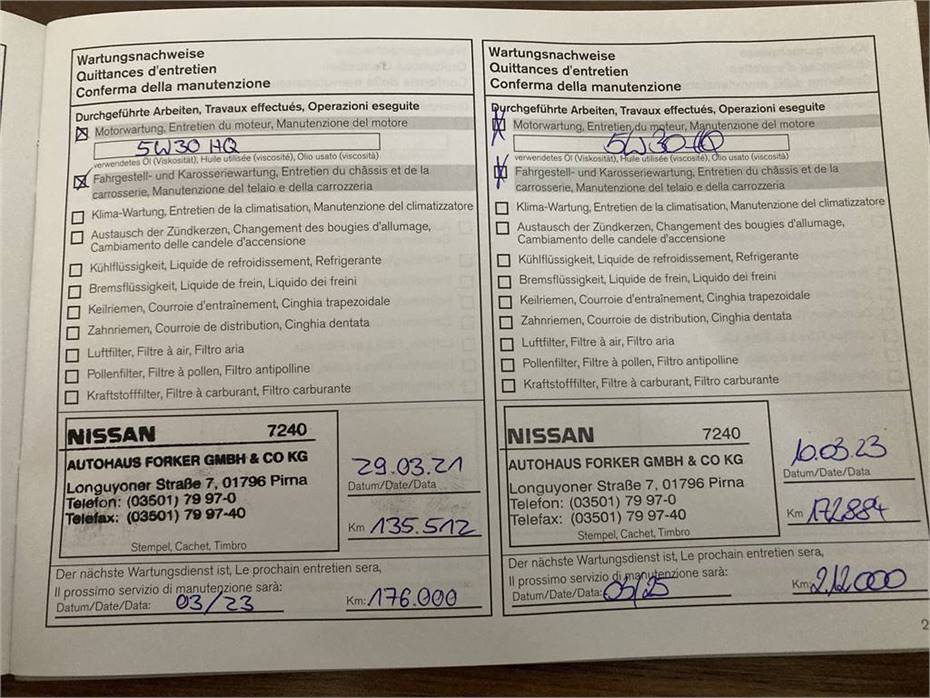 Wartungsnachweise
Quittances d'entretien
Conferma della manutenzione
Durchgeführte Arbeiten, Travaux effectués, Operazioni eseguite
Motorwartung, Entretien du moteur, Manutenzione del motore
5W30 HQ
verwendetes Öl (Viskosität), Huile utilisée (viscosité), Olio usato (viscosità)
Fahrgestell- und Karosseriewartung, Entretien du châssis et de la
carrosserie, Manutenzione del telaio e della carrozzeria
Klima-Wartung, Entretien de la climatisation, Manutenzione del climatizzatore
Austausch der Zündkerzen, Changement des bougies d'allumage,
Cambiamento delle candele d'accensione
Kühlflüssigkeit, Liquide de refroidissement, Refrigerante
Bremsflüssigkeit, Liquide de frein, Liquido dei freini
Keilriemen, Courroie d'entraînement, Cinghia trapezoidale
Zahnriemen, Courroie de distribution, Cinghia dentata
Luftfilter, Filtre à air, Filtro aria
Pollenfilter, Filtre à pollen, Filtro antipolline
Kraftstofffilter, Filtre à carburant, Filtro carburante
NISSAN 7240
AUTOHAUS FORKER GMBH & CO KG
Longuyoner Straße 7, 01796 Pirna
Telefon: (03501) 79 97-0
Telefax: (03501) 79 97-40
Stempel, Cachet, Timbro
29.03.21
Datum/Date/Data
Km 135.512
Der nächste Wartungsdienst ist, Le prochain entretien sera,
Il prossimo servizio di manutenzione sarà:
Datum/Date/Data: 03/23 Km: 176.000
Wartungsnachweise
Quittances d'entretien
Conferma della manutenzione
Durchgeführte Arbeiten, Travaux effectués, Operazioni eseguite
Motorwartung, Entretien du moteur, Manutenzione del motore
5W30 HQ
verwendetes Öl (Viskosität), Huile utilisée (viscosité), Olio usato (viscosità)
Fahrgestell- und Karosseriewartung, Entretien du châssis et de la
carrosserie, Manutenzione del telaio e della carrozzeria
Klima-Wartung, Entretien de la climatisation, Manutenzione del climatizzatore
Austausch der Zündkerzen, Changement des bougies d'allumage,
Cambiamento delle candele d'accensione
Kühlflüssigkeit, Liquide de refroidissement, Refrigerante
Bremsflüssigkeit, Liquide de frein, Liquido dei freini
Keilriemen, Courroie d'entraînement, Cinghia trapezoidale
Zahnriemen, Courroie de distribution, Cinghia dentata
Luftfilter, Filtre à air, Filtro aria
Pollenfilter, Filtre à pollen, Filtro antipolline
Kraftstofffilter, Filtre à carburant, Filtro carburante
NISSAN 7240
AUTOHAUS FORKER GMBH & CO KG
Longuyoner Straße 7, 01796 Pirna
Telefon: (03501) 79 97-0
Telefax: (03501) 79 97-40
Stempel, Cachet, Timbro
10.03.23
Datum/Date/Data
Km 172884
Der nächste Wartungsdienst ist, Le prochain entretien sera,
Il prossimo servizio di manutenzione sarà:
Datum/Date/Data: 03/25 Km: 212000
2